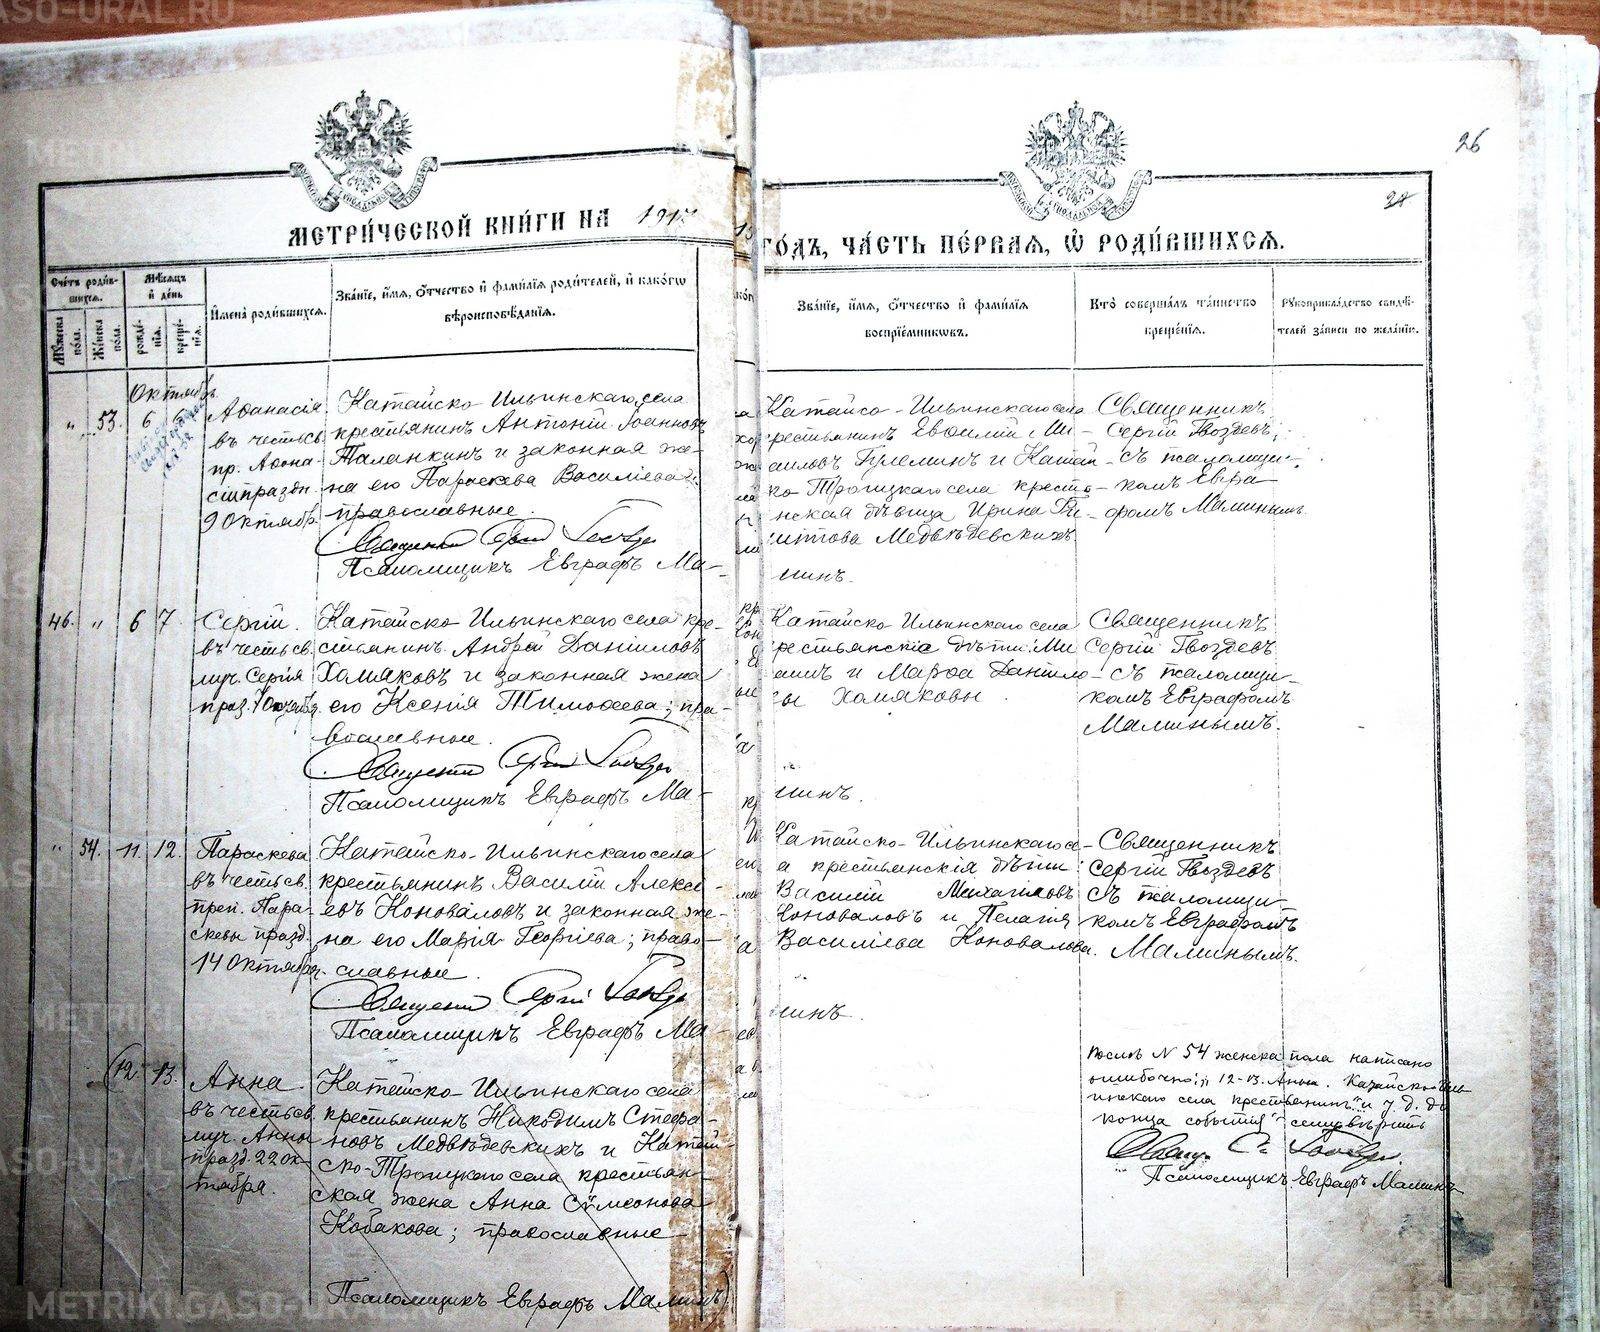 METRIKI.GASO-URAL.RU
26
24
МЕТРИ́ЧЕСКОЙ КНИ́ГИ НА 1917
ГО́ДЪ, ЧА́СТЬ ПЕ́РВАЯ, Ѡ҆ РОДИ́ВШИХСЯ.
Сче́тъ роди́в-
шихся.
Мꙋ́жеска по́ла.
Же́нска по́ла.
Мѣ́сяцъ
и҆ де́нь
рожде́-
нїя.
креще́-
нїя.
И҆мена̀ роди́вшихся.
Зва́нїе, и҆́мя, ѻ҆́тчество и҆ фами́лїя роди́телей, и҆ како́гѡ
вѣроисповѣ́данїя.
Зва́нїе, и҆́мя, ѻ҆́тчество и҆ фами́лїя
воспрїе́мникѡвъ.
Кто̀ соверша́лъ та́инство
креще́нїя.
Рꙋкоприкла́дство свидѣ́-
телей за́писи по жела́нїю.
Октябрь
" 53. 6 6
Аѳанасія
въ честь св.
пр. Аѳана-
сіи праздн.
9 Октябр.
Катайско-Ильинскаго села
крестьянинъ Антоній Іоанновъ
Таланкинъ и законная же-
на его Параскева Василіева;
православные.
Священникъ Сергій Гвоздевъ
Псаломщикъ Евграфъ Ма-
линъ.
Катайско-Ильинскаго села
крестьянинъ Евѳимій Ми-
хаиловъ Гулеминъ и Катай-
ско Троицкаго села кресть-
янская дѣвица Ирина Ти-
това Медвѣдевскихъ
Священникъ
Сергій Гвоздевъ,
съ псаломщи-
комъ Евгра-
фомъ Малинымъ.
46. " 6 7
Сергій.
въ честь св.
муч. Сергія
праз. 7 Октября
Катайско-Ильинскаго села кре-
стьянинъ Андрей Даніиловъ
Хомяковъ и законная жена
его Ксенія Тимоѳеева; пра-
вославные.
Священникъ Сергій Гвоздевъ
Псаломщикъ Евграфъ Ма-
линъ.
Катайско-Ильинскаго села
крестьянскіе дѣти: Ми
хаилъ и Марѳа Данило-
вы Хомяковы.
Священникъ
Сергій Гвоздевъ
съ псаломщи-
комъ Евграфомъ
Малинымъ.
" 54. 11. 12.
Параскева
въ честь св.
преп. Пара-
скевы празд.
14 Октября.
Катайско-Ильинскаго села
крестьянинъ Василій Алексе-
евъ Коноваловъ и законная же-
на его Марія Георгіева; право-
славные.
Священникъ Сергій Гвоздевъ
Псаломщикъ Евграфъ Ма-
линъ.
Катайско-Ильинскаго се-
ла крестьянскія дѣти:
Василій Михаиловъ
Коноваловъ и Пелагія
Василіева Коновалова.
Священникъ
Сергій Гвоздевъ
съ псаломщи-
комъ Евграфомъ
Малинымъ.
12. 13.
Анна
въ честь св.
муч. Анны
празд. 22 ок-
тября.
Катайско-Ильинскаго села
крестьянинъ Никодимъ Стефа-
новъ Медвѣдевскихъ и Катай-
ско-Троицкаго села крестьян-
ская жена Анна Сѵмеонова
Кобакова; православные
Псаломщикъ Евграфъ Малинъ)
Послѣ N 54 женска пола написано
ошибочно: „ 12-13. Анна. Катайско-Иль-
инскаго села крестьянинъ" и т. д. до
конца событія
Свящ. С. Гвоздевъ.
Псаломщикъ Евграфъ Малинъ
METRIKI.GASO-URAL.RU